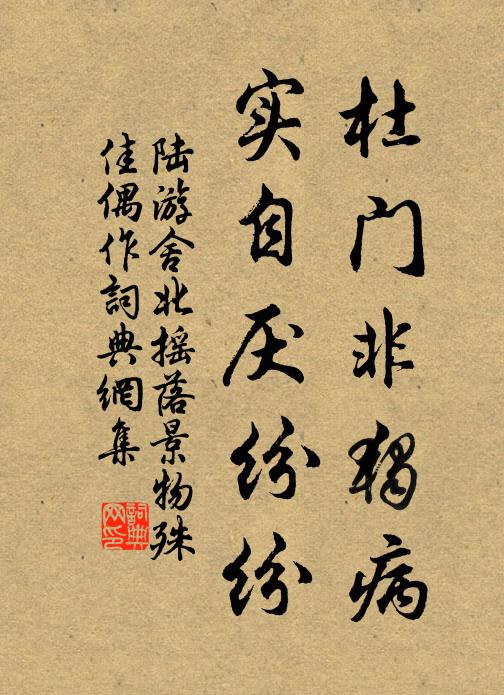 杜门非独病
实自厌纷纷
陆游舍北摇落景物殊
佳偶作詞典網集
詞典
网印